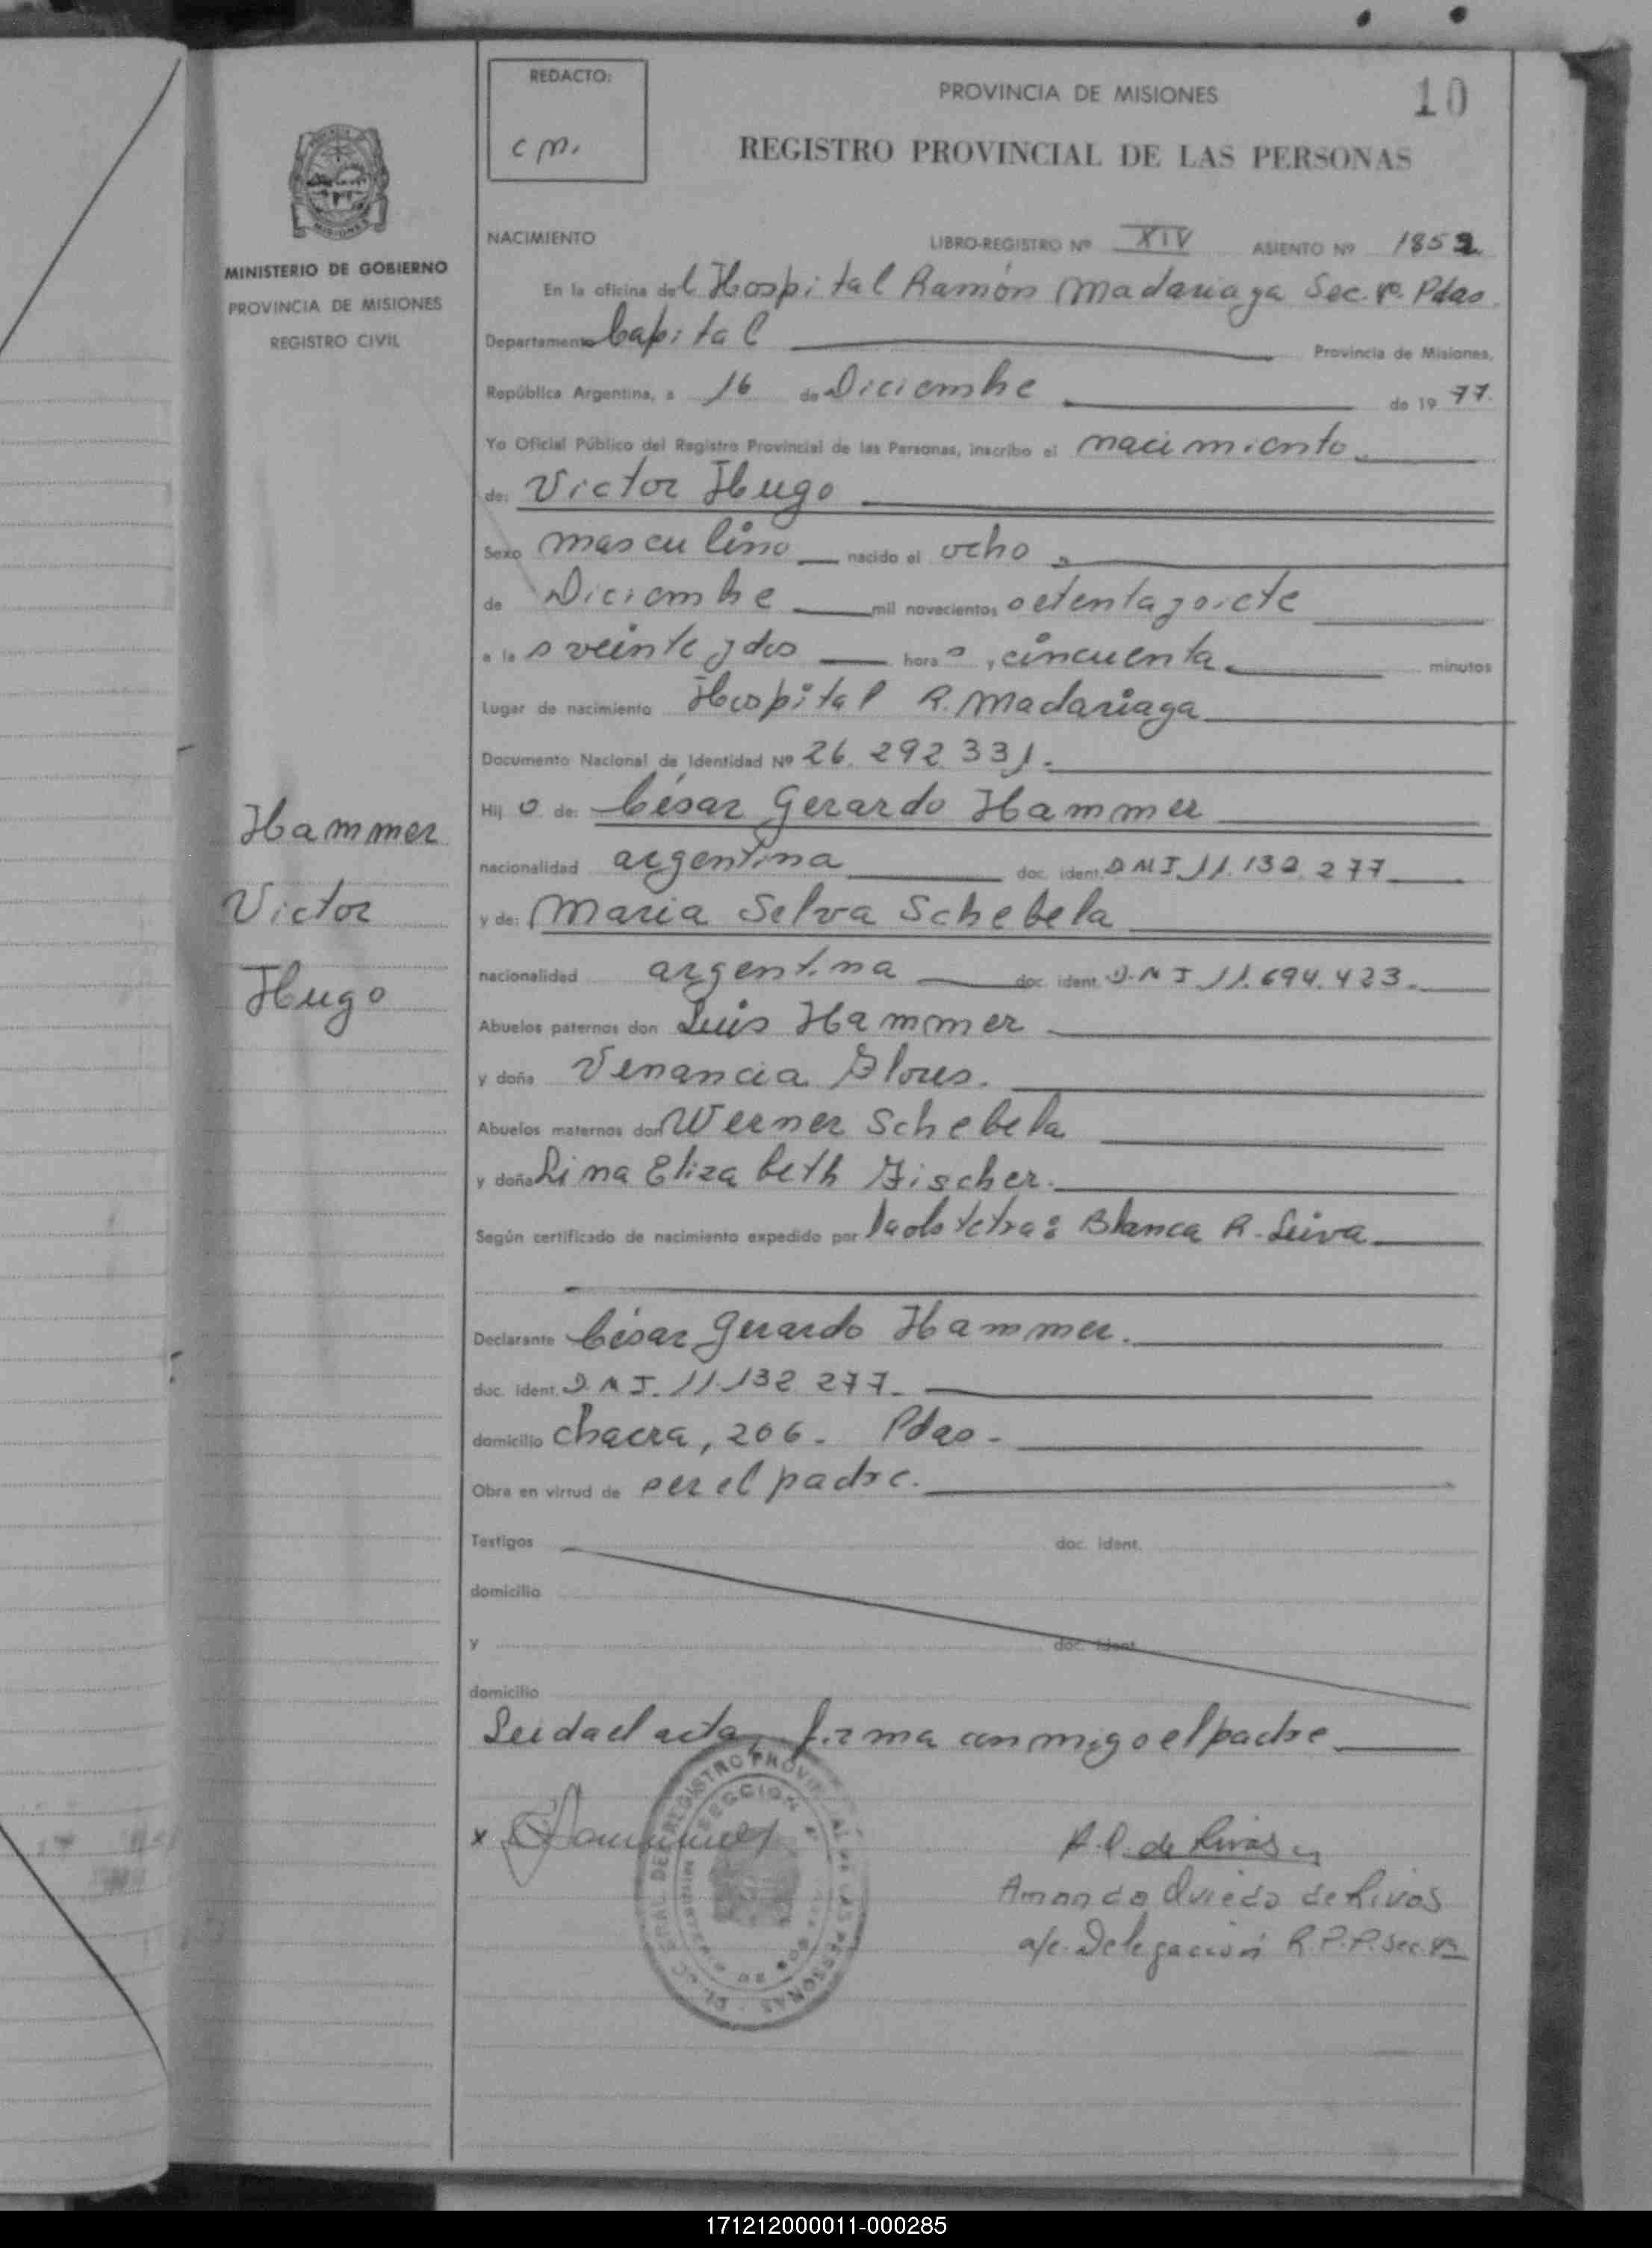 REDACTO:
C M.
PROVINCIA DE MISIONES
10
REGISTRO PROVINCIAL DE LAS PERSONAS
MINISTERIO DE GOBIERNO
PROVINCIA DE MISIONES
REGISTRO CIVIL
NACIMIENTO LIBRO-REGISTRO Nº XIV ASIENTO Nº 1852
En la oficina del Hospital Ramón Madariaga Sec. 4a. Pdas.
Departamento Capital Provincia de Misiones,
República Argentina, a 16 de Diciembre de 19 77.
Yo Oficial Público del Registro Provincial de las Personas, inscribo el nacimiento
de: Victor Hugo
Sexo masculino nacido el ocho
de Diciembre mil novecientos setenta y siete
a la s veinte y dos hora s y cincuenta minutos
Lugar de nacimiento Hospital R. Madariaga
Documento Nacional de Identidad Nº 26.292.331.
Hij o de: César Gerardo Hammer
nacionalidad argentina doc. ident. D N I 11.132.277
y de: Maria Selva Schebela
nacionalidad argentina doc. ident. D. N I 11.694.423.
Abuelos paternos don Luis Hammer
y doña Venancia Flores.
Abuelos maternos don Werner Schebela
y doña Lina Elizabeth Fischer.
Según certificado de nacimiento expedido por la obstetra: Blanca R. Leiva
Declarante César Gerardo Hammer.
doc. ident. D. N I. 11.132.277.
domicilio chacra, 206. Pdas.
Obra en virtud de ser el padre.
Testigos doc. ident.
domicilio
y doc. ident.
domicilio
Leida el acta, firma conmigo el padre
Hammer
Victor
Hugo
x Hammer
A. O. de Rivas
Amanda Oviedo de Rivas
a/c. Delegación R.P.P. Sec. 4a
REGISTRO PROVINCIAL DE LAS PERSONAS
SECCION
171212000011-000285